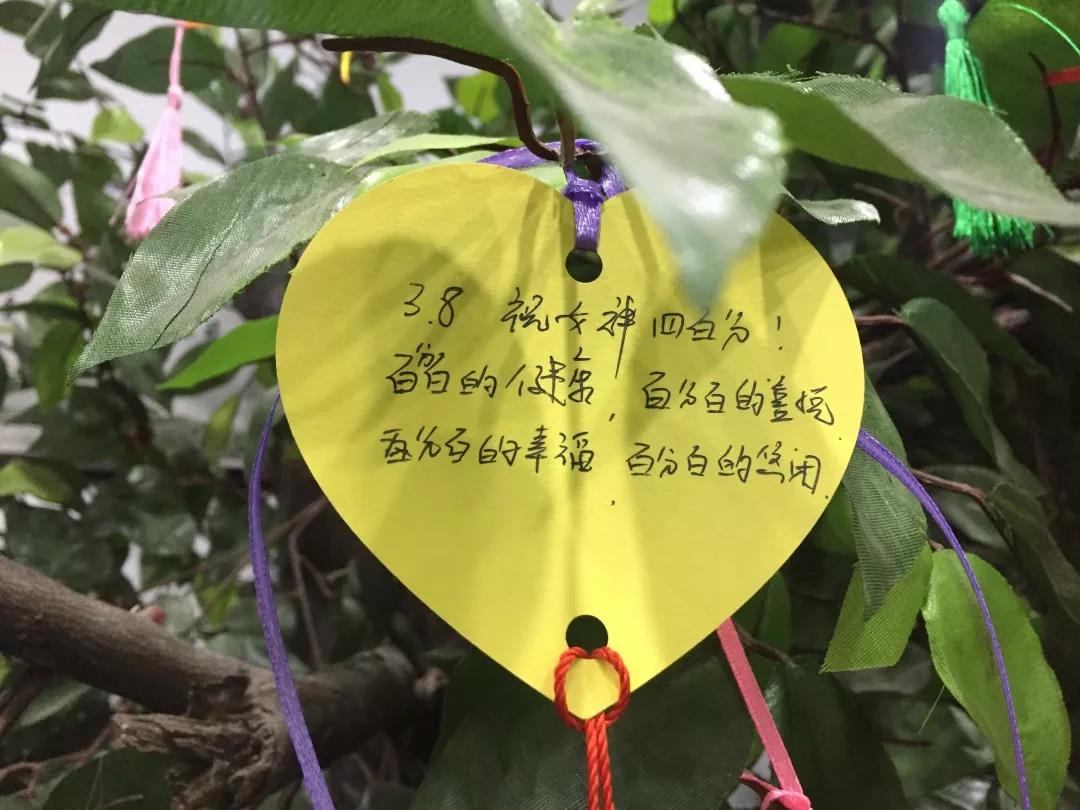 3.8 祝女神四百分！
百分百的健康，百分百的美丽，
百分百的幸福，百分百的悠闲.